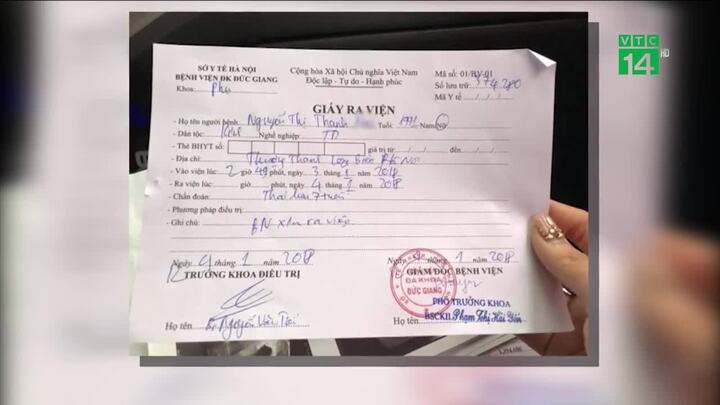 VTC
14 HD
SỞ Y TẾ HÀ NỘI
BỆNH VIỆN ĐK ĐỨC GIANG
Khoa: phụ
Cộng hòa Xã hội Chủ nghĩa Việt Nam
Độc lập - Tự do - Hạnh phúc
Mã số: 01/BV-01
Số lưu trữ:
Mã Y tế / / /
GIẤY RA VIỆN
- Họ tên người bệnh: Nguyễn Thị Thanh Tuổi: 1991 Nam/Nữ
- Dân tộc: Kinh Nghề nghiệp: TD
- Thẻ BHYT số: giá trị từ / / đến / /
- Địa chỉ: Thượng Thanh Long Biên
- Vào viện lúc: 2 giờ 49 phút, ngày 3 tháng 1 năm 2018
- Ra viện lúc: giờ phút, ngày 4 tháng 1 năm 2018
- Chẩn đoán: Thai lưu 7 tuần
- Phương pháp điều trị:
- Ghi chú: BN xin ra viện
Ngày 4 tháng 1 năm 2018
TRƯỞNG KHOA ĐIỀU TRỊ
Họ tên
Ngày tháng 1 năm 2018
GIÁM ĐỐC BỆNH VIỆN
ĐA KHOA
ĐỨC GIANG
PHÓ TRƯỞNG KHOA
Họ tên BSCKII. Phạm Thị Hải Yến